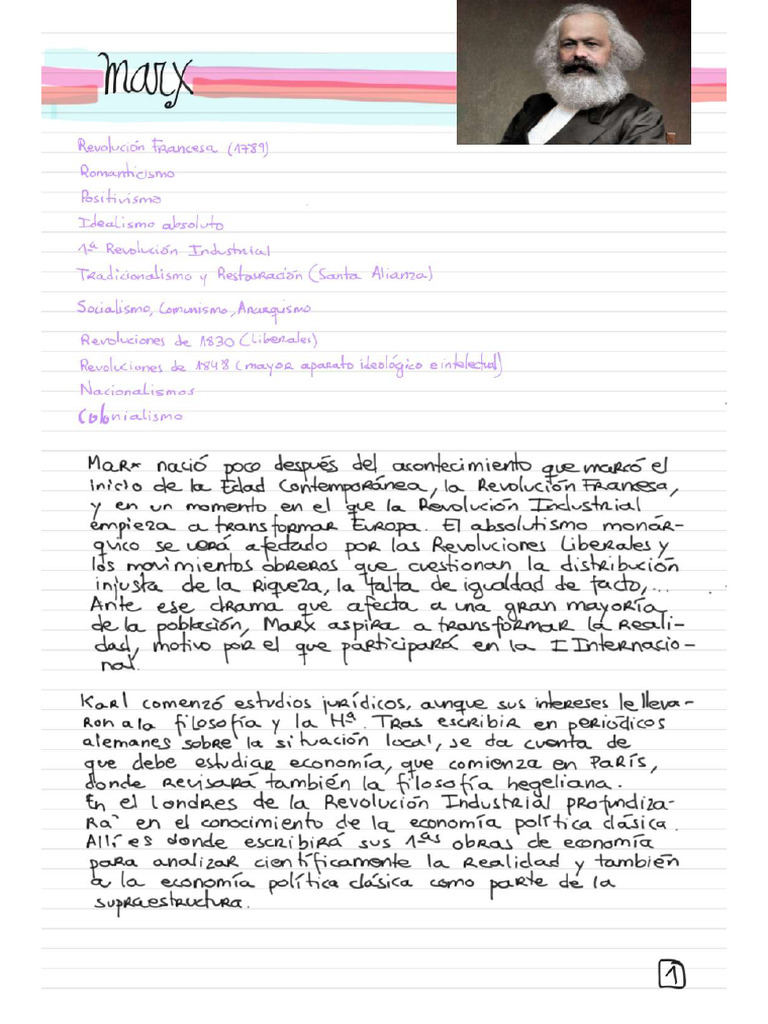 Marx
Revolución Francesa (1789)
Romanticismo
Positivismo
Idealismo absoluto
1ª Revolución Industrial
Tradicionalismo y Restauración (Santa Alianza)
Socialismo, Comunismo, Anarquismo
Revoluciones de 1830 (Liberales)
Revoluciones de 1848 (mayor aparato ideológico e intelectual)
Nacionalismos
Colonialismo
Marx nació poco después del acontecimiento que marcó el
inicio de la Edad Contemporánea, la Revolución Francesa,
y en un momento en el que la Revolución Industrial
empieza a transformar Europa. El absolutismo monár-
quico se verá afectado por las Revoluciones Liberales y
los movimientos obreros que cuestionan la distribución
injusta de la riqueza, la falta de igualdad de facto,...
Ante ese drama que afecta a una gran mayoría
de la población, Marx aspira a transformar la reali-
dad, motivo por el que participará en la I Internacio-
nal.
Karl comenzó estudios jurídicos, aunque sus intereses le lleva-
ron a la filosofía y la Hª. Tras escribir en periódicos
alemanes sobre la situación local, se da cuenta de
que debe estudiar economía, que comienza en París,
donde revisará también la filosofía hegeliana.
En el Londres de la Revolución Industrial profundiza-
rá en el conocimiento de la economía política clásica.
Allí es donde escribirá sus 1ªs obras de economía
para analizar científicamente la realidad y también
a la economía política clásica como parte de la
supraestructura.
1